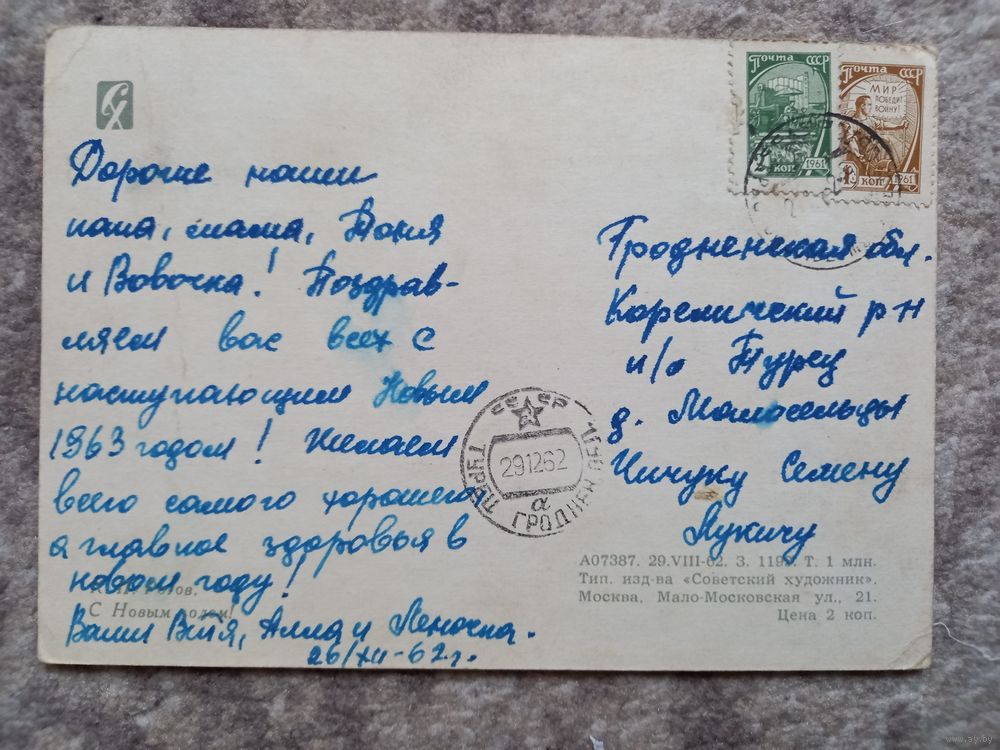 Дорогие наши
папа, мама, Тоня
и Вовочка! Поздрав-
ляем вас всех с
наступающим Новым
1963 годом! Желаем
всего самого хорошего
а главное здоровья в
новом году!
С Новым годом!
Ваши Витя, Алла и Леночка.
26/XII-62г.
Почта СССР
1961
коп
Почта СССР
МИР
ПОБЕДИТ
ВОЙНУ!
1961
коп
Гродненская обл.
Кореличский р-н
п/о Турец
д. Малосельцы
Чичуку Семену
Лукичу
СССР
ТУРЕЦ ГРОДНЕН. ОБЛ.
291262
а
А07387. 29.VIII-62. З. Т. 1 млн.
Тип. изд-ва «Советский художник».
Москва, Мало-Московская ул., 21.
Цена 2 коп.
www.ay.by